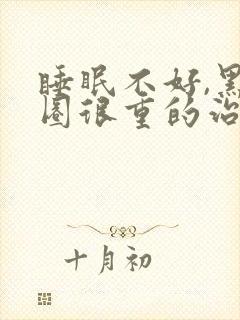 睡眠不好,黑
圈很重的治
十月初